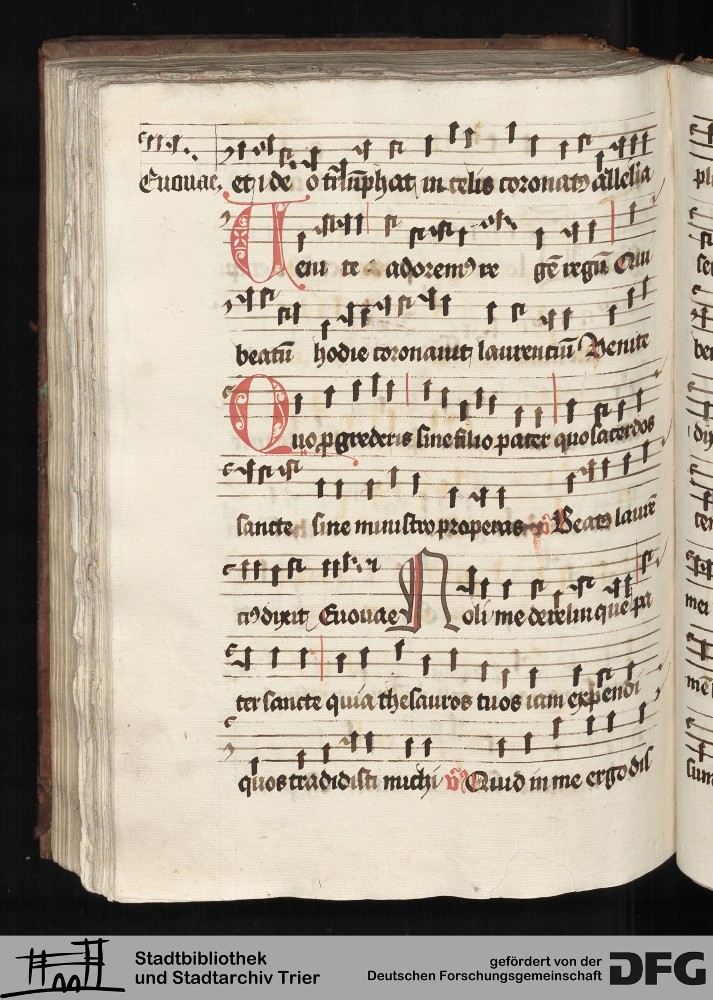 Euouae. et i de o triūphat in celis coronatꝰ allelia
Ueni te adoremꝰ re gē regū Qui
beatū hodie coronauit laurenciū Venite
Quo ꝓgrederis sine filio pater quo sacerdos
sancte sine ministro properas Beatꝰ laurē
tiꝰ dixit Euouae Noli me derelinque pa
ter sancte quia thesauros tuos iam expendi
quos tradidisti michi v̄ꝰ Quid in me ergo dis
Stadtbibliothek
und Stadtarchiv Trier
gefördert von der
Deutschen Forschungsgemeinschaft
DFG